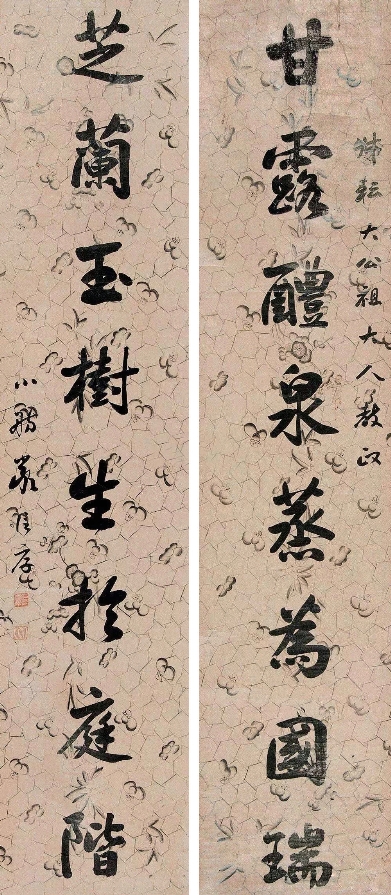 耘大公祖大人教政
甘露醴泉蒸為國瑞
芝蘭玉樹生於庭階
小舫嚴